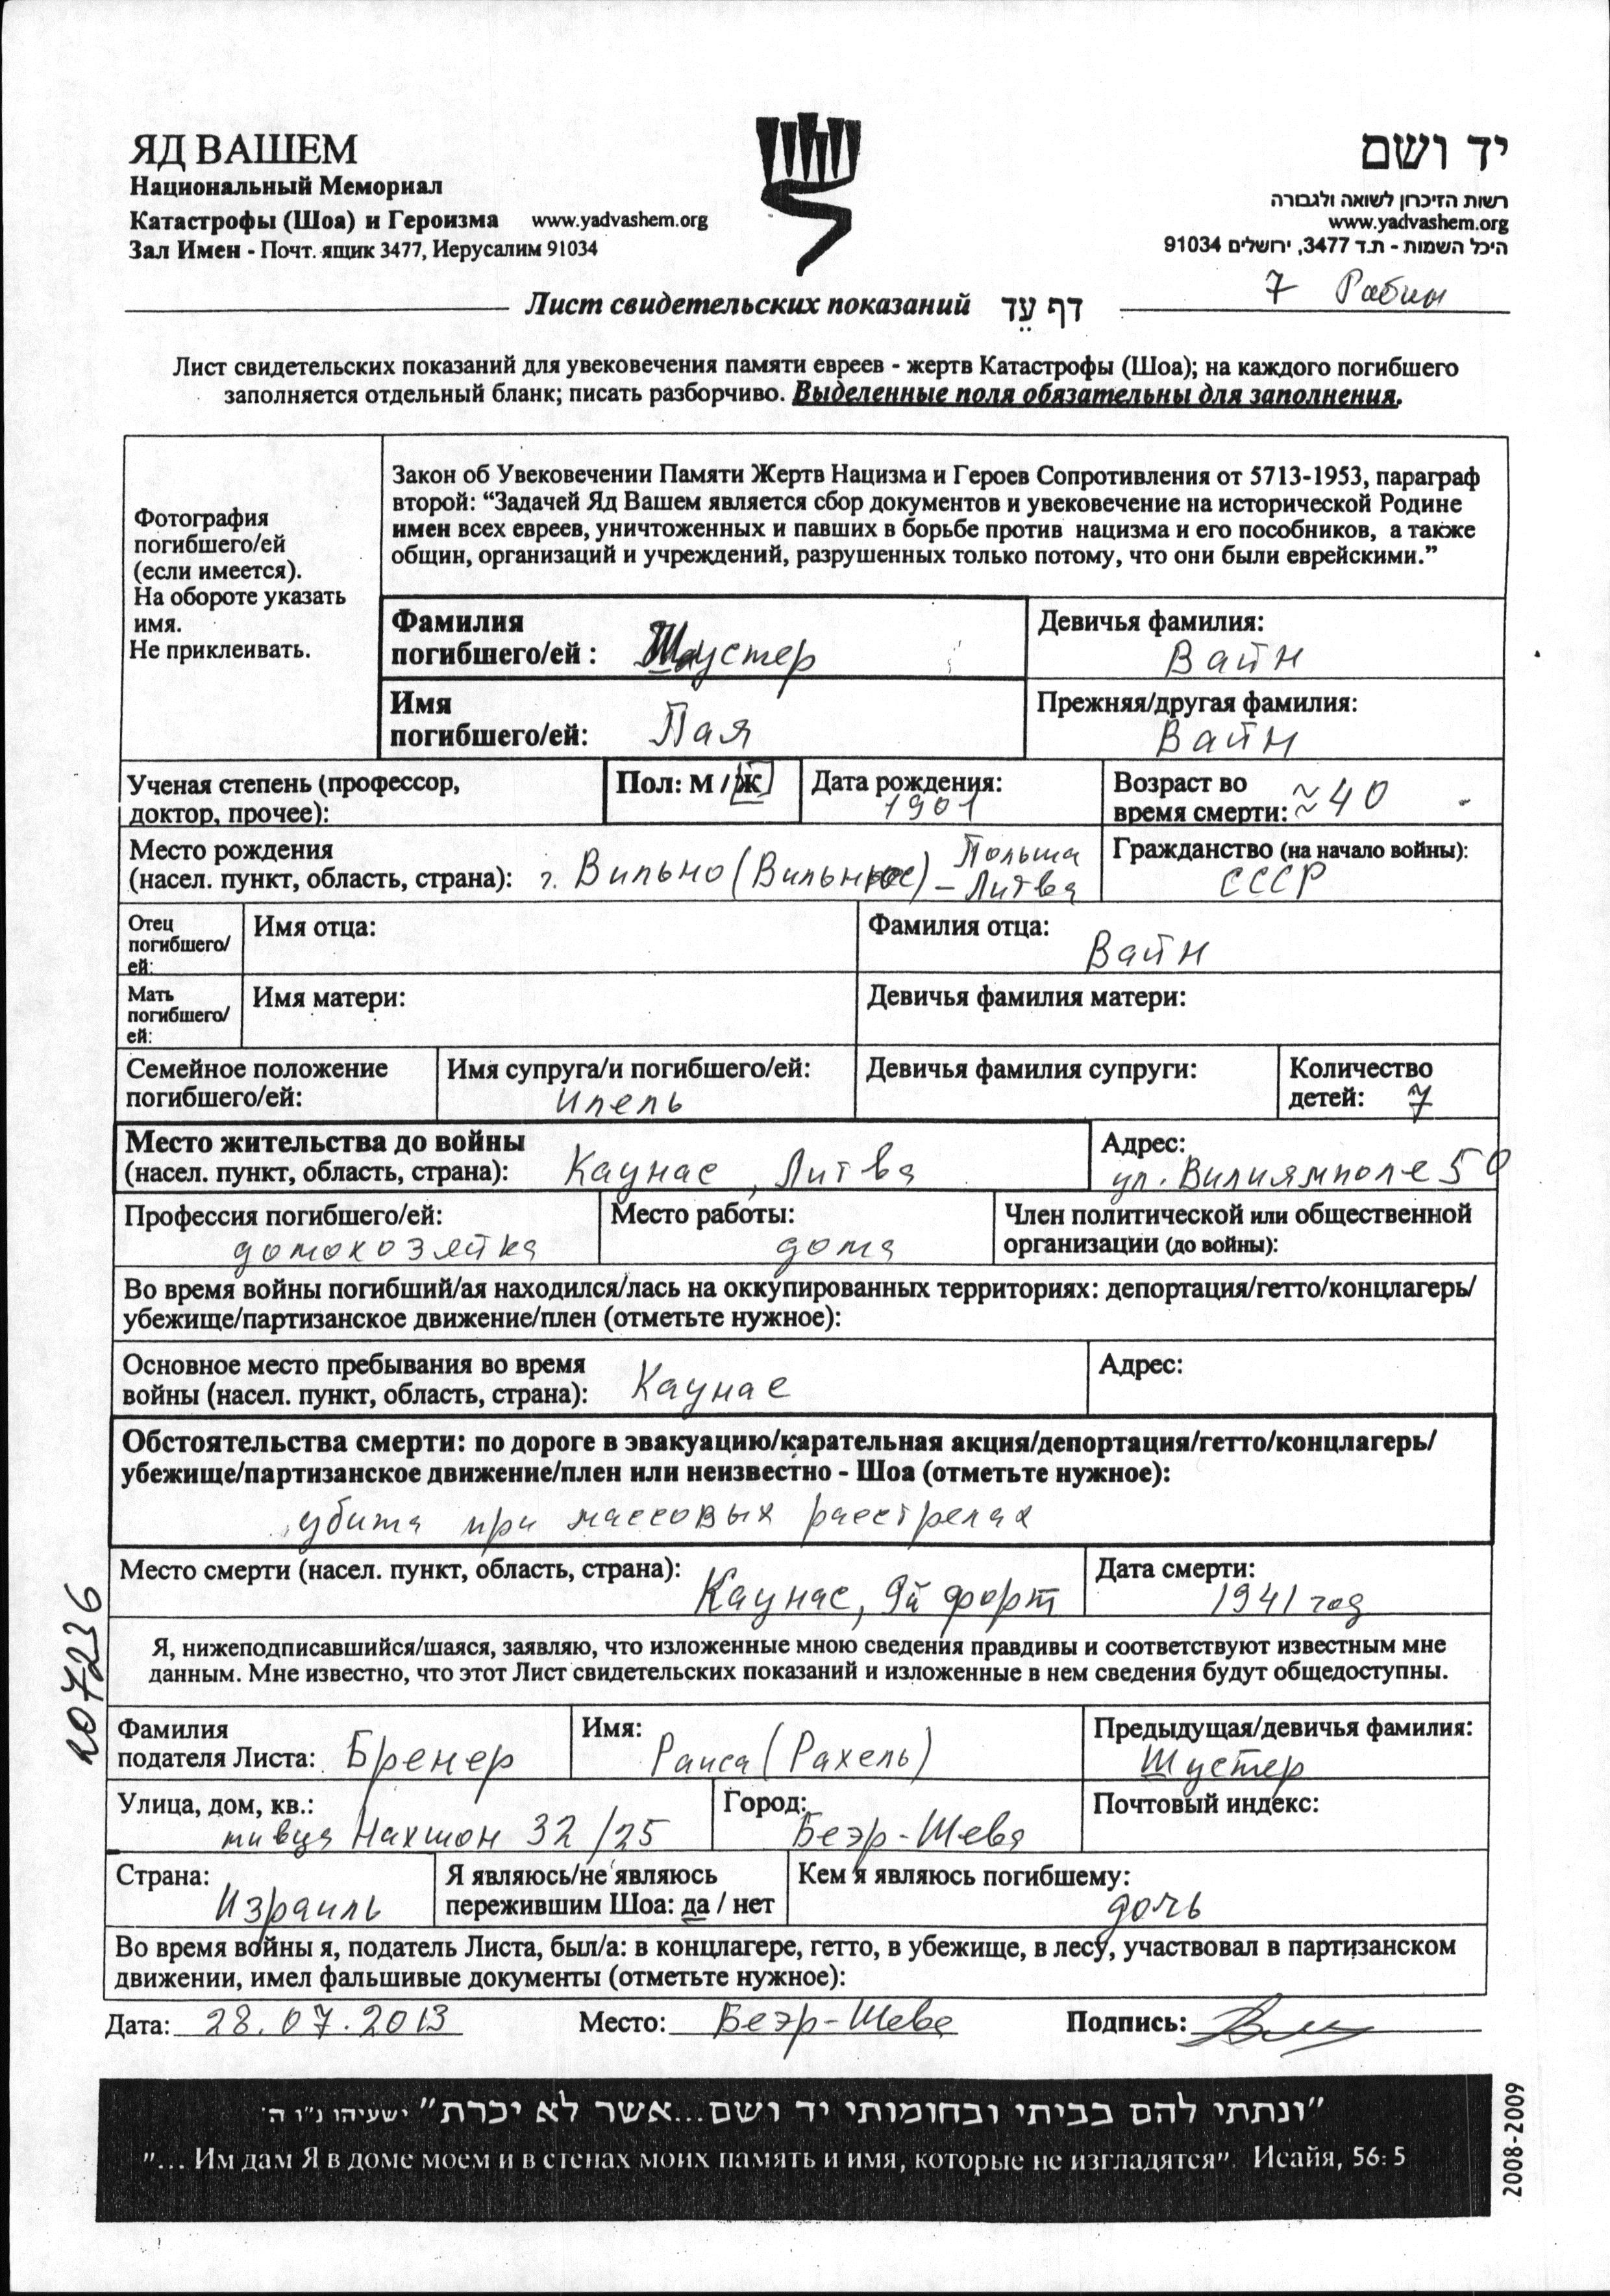 ЯД ВАШЕМ
Национальный Мемориал
Катастрофы (Шоа) и Героизма www.yadvashem.org
Зал Имен - Почт. ящик 3477, Иерусалим 91034
יד ושם
רשות הזיכרון לשואה ולגבורה
www.yadvashem.org
היכל השמות - ת.ד 3477, ירושלים 91034
7 Рабин
Лист свидетельских показаний דף עֵד
Лист свидетельских показаний для увековечения памяти евреев - жертв Катастрофы (Шоа); на каждого погибшего
заполняется отдельный бланк; писать разборчиво. Выделенные поля обязательны для заполнения.
Фотография
погибшего/ей
(если имеется).
На обороте указать
имя.
Не приклеивать.
Закон об Увековечении Памяти Жертв Нацизма и Героев Сопротивления от 5713-1953, параграф
второй: “Задачей Яд Вашем является сбор документов и увековечение на исторической Родине
имен всех евреев, уничтоженных и павших в борьбе против нацизма и его пособников, а также
общин, организаций и учреждений, разрушенных только потому, что они были еврейскими.”
Фамилия
погибшего/ей : Шустер
Девичья фамилия:
Вайн
Имя
погибшего/ей: Пая
Прежняя/другая фамилия:
Вайн
Ученая степень (профессор,
доктор, прочее):
Пол: М / Ж
Дата рождения:
1901
Возраст во
время смерти: ≈ 40
Место рождения
(насел. пункт, область, страна): г. Вильно (Вильнюс) - Польша
Литва
Гражданство (на начало войны):
СССР
Отец
погибшего/
ей:
Имя отца:
Фамилия отца:
Вайн
Мать
погибшего/
ей:
Имя матери:
Девичья фамилия матери:
Семейное положение
погибшего/ей:
Имя супруга/и погибшего/ей:
Ипель
Девичья фамилия супруги:
Количество
детей: 7
Место жительства до войны
(насел. пункт, область, страна): Каунас, Литва
Адрес:
ул. Вилиямполе 50
Профессия погибшего/ей:
домохозяйка
Место работы:
дома
Член политической или общественной
организации (до войны):
Во время войны погибший/ая находился/лась на оккупированных территориях: депортация/гетто/концлагерь/
убежище/партизанское движение/плен (отметьте нужное):
Основное место пребывания во время
войны (насел. пункт, область, страна): Каунас
Адрес:
Обстоятельства смерти: по дороге в эвакуацию/карательная акция/депортация/гетто/концлагерь/
убежище/партизанское движение/плен или неизвестно - Шоа (отметьте нужное):
убита при массовых расстрелах
Место смерти (насел. пункт, область, страна):
Каунас, 9й форт
Дата смерти:
1941 год
Я, нижеподписавшийся/шаяся, заявляю, что изложенные мною сведения правдивы и соответствуют известным мне
данным. Мне известно, что этот Лист свидетельских показаний и изложенные в нем сведения будут общедоступны.
207236
Фамилия
подателя Листа: Бренер
Имя:
Раиса (Рахель)
Предыдущая/девичья фамилия:
Шустер
Улица, дом, кв.:
мивца Нахшон 32 /25
Город:
Беэр-Шева
Почтовый индекс:
Страна:
Израиль
Я являюсь/не являюсь
пережившим Шоа: да / нет
Кем я являюсь погибшему:
дочь
Во время войны я, податель Листа, был/а: в концлагере, гетто, в убежище, в лесу, участвовал в партизанском
движении, имел фальшивые документы (отметьте нужное):
Дата: 28.07.2013 Место: Беэр-Шева Подпись:
"ונתתי להם בביתי ובחומותי יד ושם...אשר לא יכרת" ישעיהו נ"ו ה'
"... Им дам Я в доме моем и в стенах моих память и имя, которые не изгладятся". Исайя, 56: 5
2008-2009